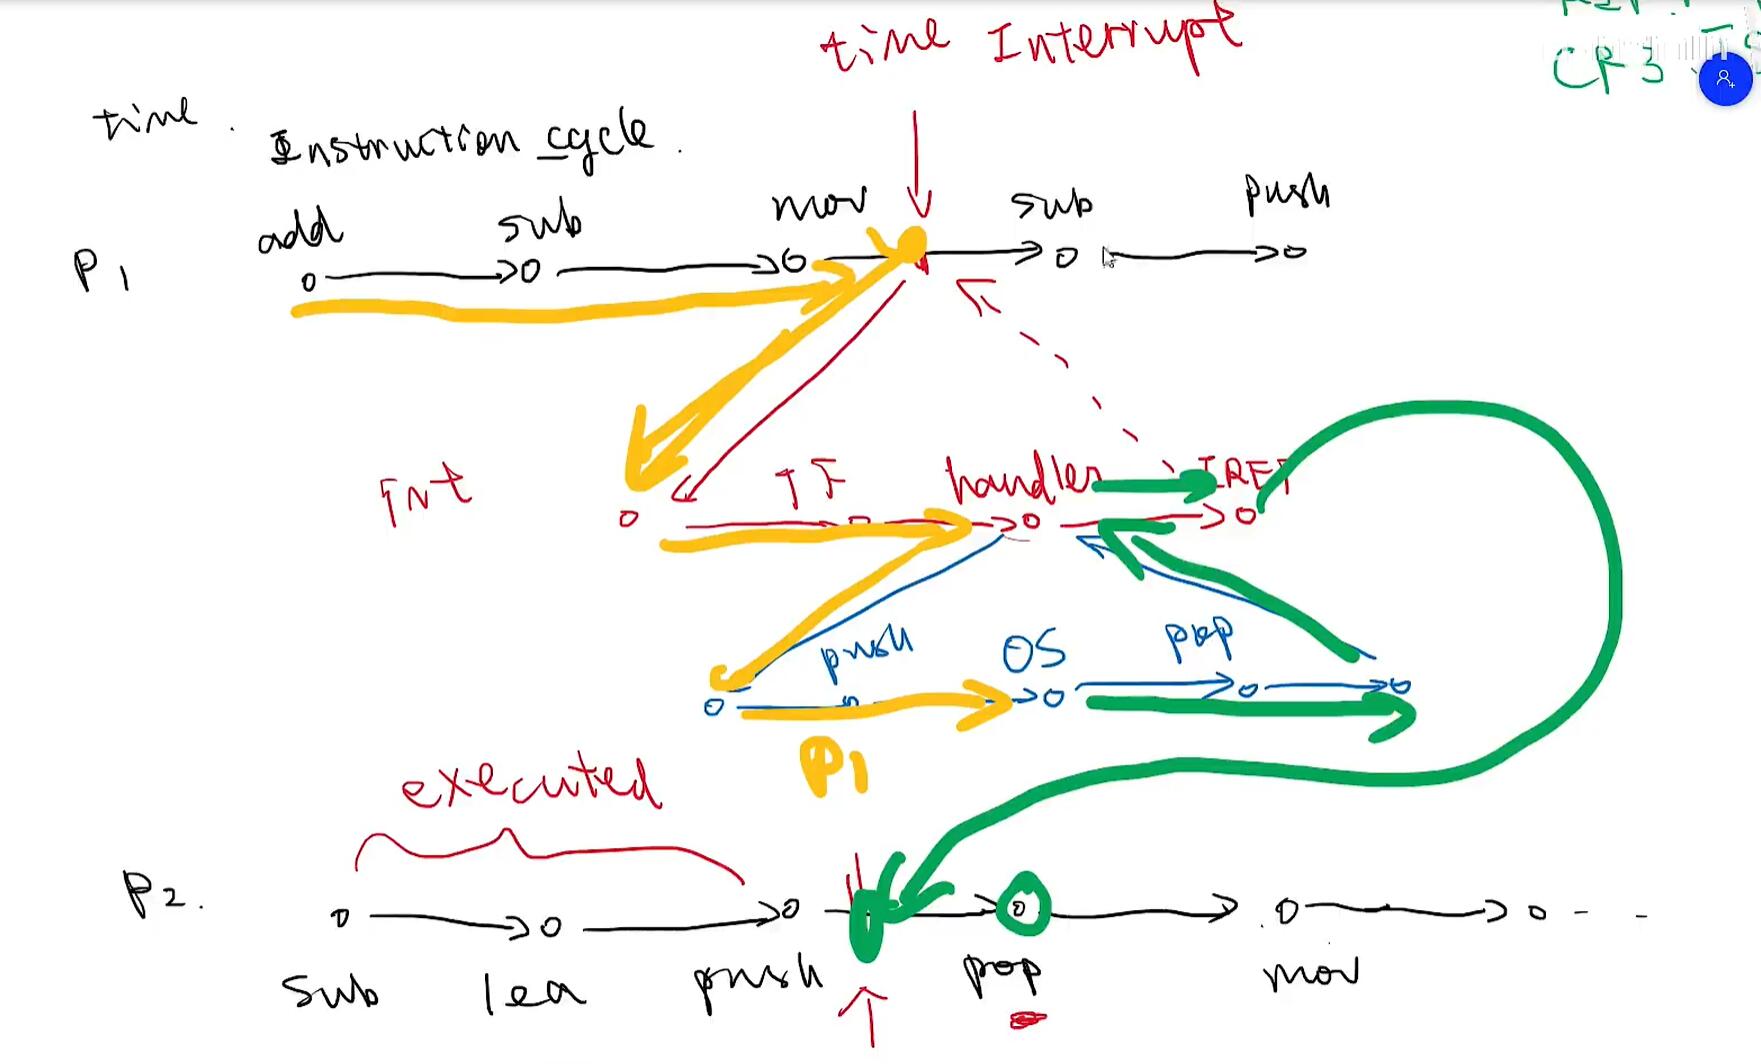 time Interrupt
CR3
time.
Instruction cycle.
add sub mov sub push
P1
Int IF handler IRET
push OS pop
P1
executed
P2.
sub lea push pop mov